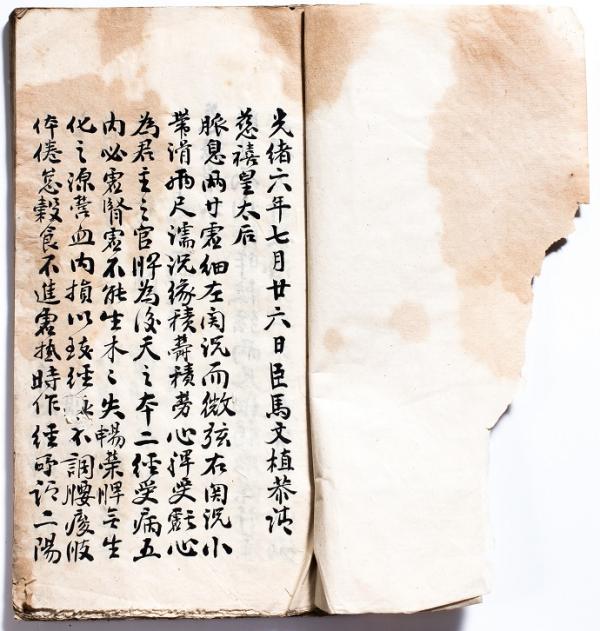 光緒六年七月廿六日臣馬文植恭請
慈禧皇太后
脈息兩寸虛細左関沉而微弦右関沉小
帶滑兩尺濡沉緣積欝積勞心脾受虧心
為君主之官脾為後天之本二經受病五
内必虛腎虛不能生木〻失暢榮脾乏生
化之源營血内損以致經水不調腰痠肢
体倦怠穀食不進虛熱時作經所謂二陽